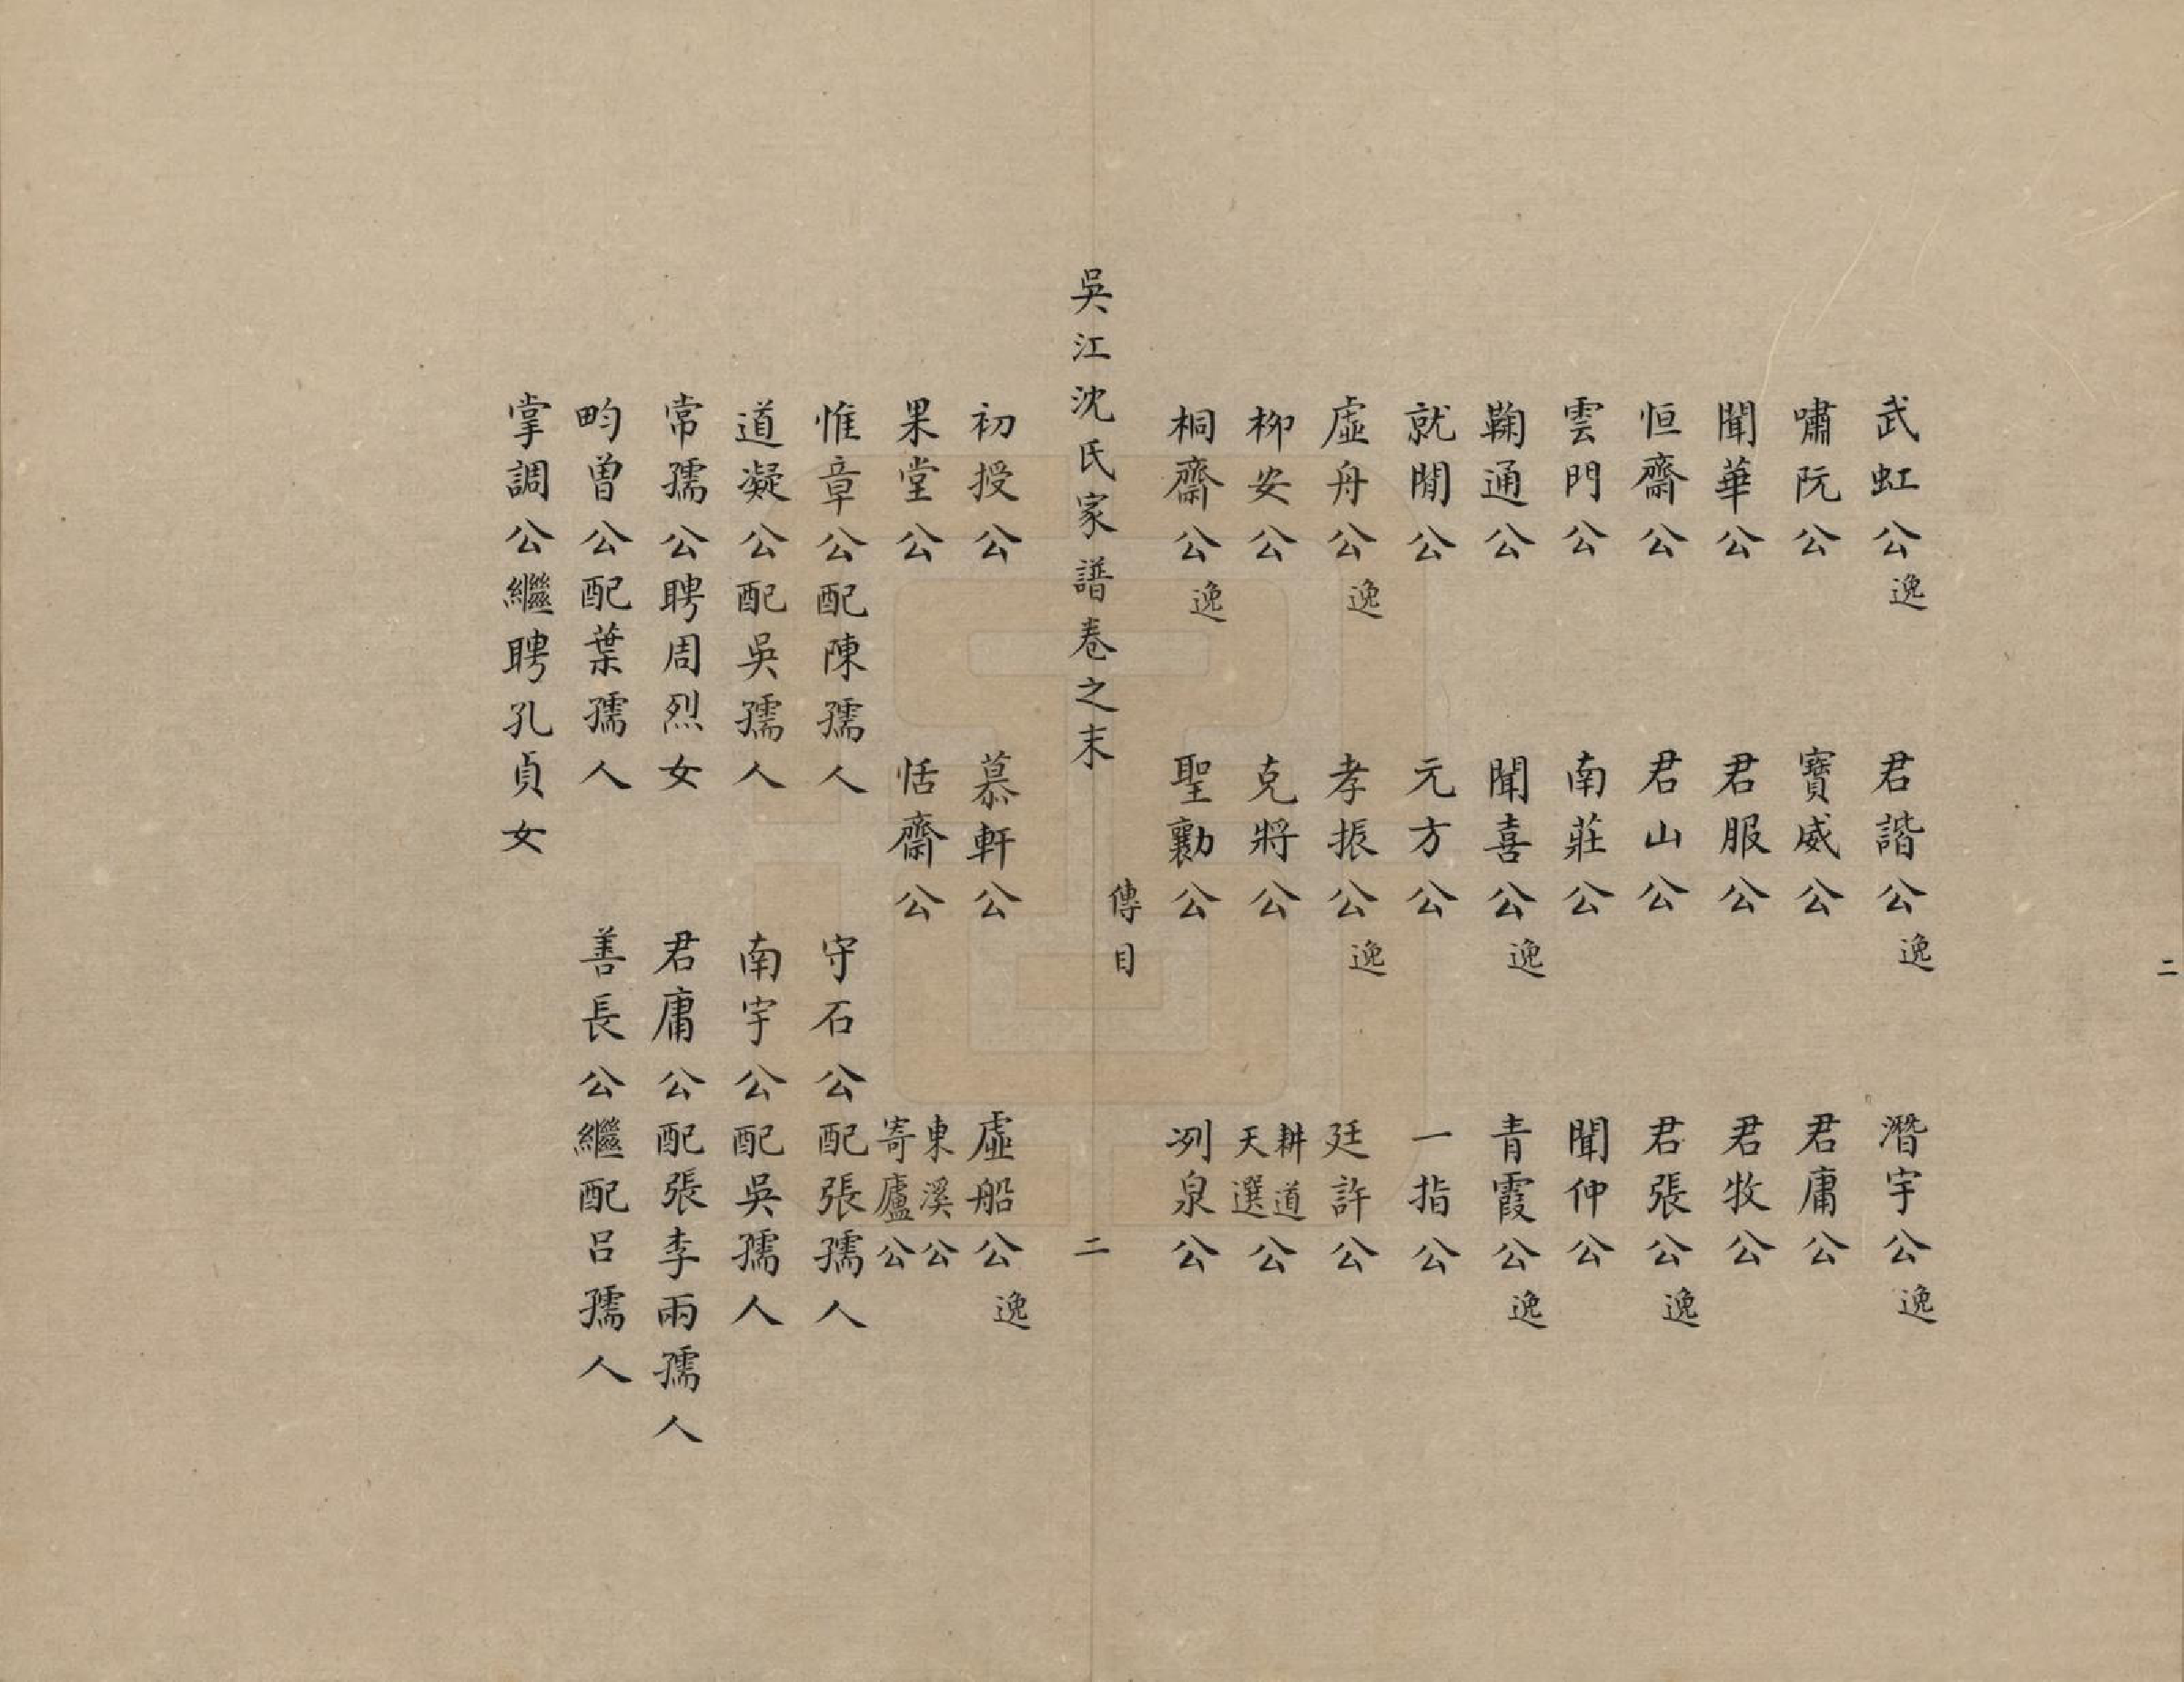 武虹公逸　君諧公逸　潛宇公逸
嘯阮公　寶威公　君庸公
聞華公　君服公　君牧公
恒齋公　君山公　君張公逸
雲門公　南莊公　聞仲公
鞠通公　聞喜公逸　青霞公逸
就閒公　元方公　一指公
虛舟公逸　孝振公逸　廷許公
栁安公　克將公　耕道天選公
桐齋公逸　聖勷公　冽泉公
吳江沈氏家譜卷之末　傳目　二
初授公　慕軒公　虛船公逸
果堂公　恬齋公　東溪公寄廬公
惟章公配陳孺人　守石公配張孺人
道凝公配吳孺人　南宇公配吳孺人
常孺公聘周烈女　君庸公配張李兩孺人
畇曽公配葉孺人　善長公繼配呂孺人
掌調公繼聘孔貞女
二